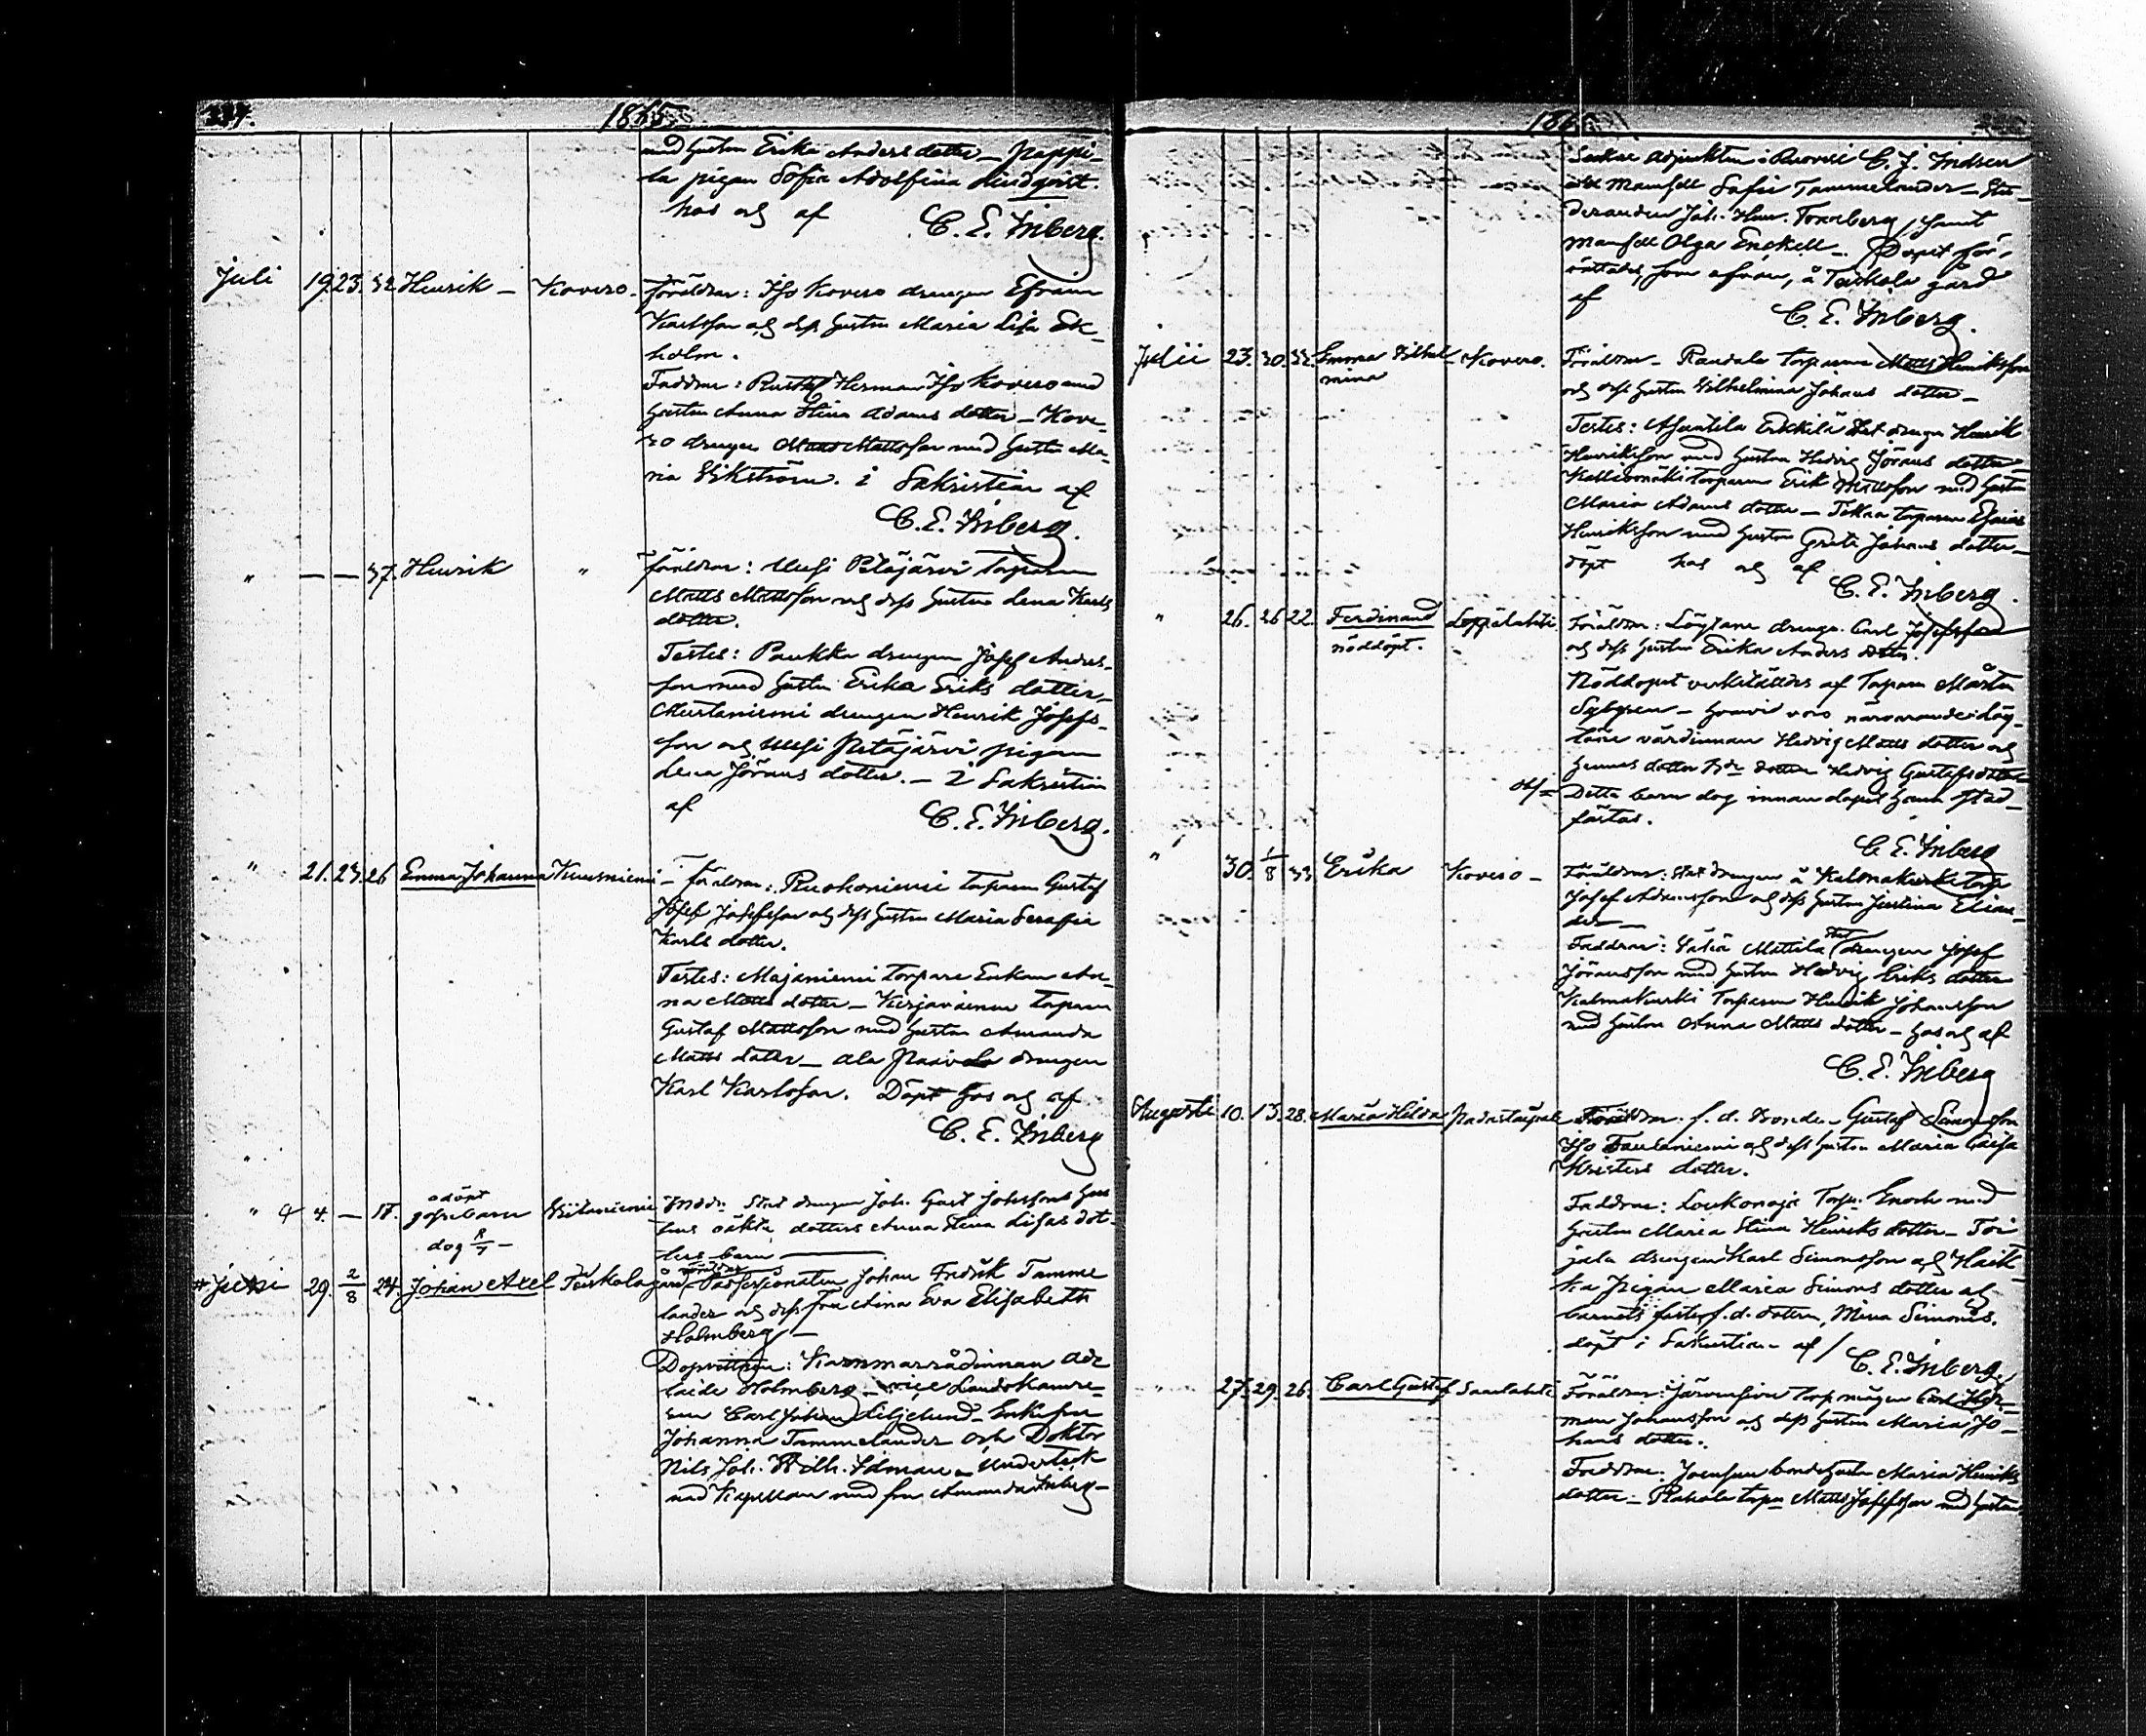 227.
1865
med hustru Erika Anders dotter – Pappi-
la pigan Sofia Adolfina Lindqvist.
hos mig af C. E. Inberg.
Juli 19. 23. 32 Henrik – Kovero. Föräldrar: Iso Kovero drengen Efraim
Karlsson och dess hustru Maria Lisa Ek-
holm.
Faddrar: Rusth. Herman Iso Kovero med
hustru Anna Stina Adams dotter – Kove-
ro drengen Matts Mattsson med hustru Ma-
ria Wikström. i Sakristian af
C. E. Inberg.
" — — 37. Henrik " föräldrar: Uusi Pitäjärvi torparen
Matts Mattsson och dess hustru Lena Karls
dotter.
Testes: Paukka drengen Josef Anders-
son med hustru Erika Eriks dotter –
Mustaniemi drengen Henrik Josefs-
son och Uusi Pitäjärvi pigan
Lena Jörans dotter. – i Sakristian
af C. E. Inberg.
" 21. 23. 26 Emma Johanna Kuusniemi – föräldrar: Ruokoniemi torparen Gustaf
Josef Josefsson och dess hustru Maria Serafia
Karls dotter.
Testes: Majaniemi torpare Enkan An-
na Matts dotter – torparen
Gustaf Mattsson med hustru Amanda
Matts dotter – Ala Paavola drengen
Karl Karlsson. Döpt hos mig af
C. E. Inberg
" 4. — 18. odöpt
gossebarn
dog 8/7 –
Stat drengen Joh. Gust. Johnssons hus-
trus oäkta dotters Anna Stina Lisas dot-
ters barn
29. 2/8 24. Johan Axel Terkola gård – föräldrar Possessionaten Johan Fredrik Tamme
lander och dess fru Aina Eva Elisabeth
Holmberg –
Dopvittnen: Kammarrådinnan Ade
laide Holmberg – vice Landskamre-
ren Carl Johan Liljelund – Enkefru
Johanna Tammelander och Doktor
Nils Joh. Wilh. Idman – Underteck
nad Kapellan med fru Amanda Inberg –
1865
Sockne adjunkten i Ruovesi C. J. Indrén
med Mamsell Sofie Tammelander – Stu-
deranden Joh. Henr. Tornberg, samt
Mamsell Olga Enckell –. Dopet för-
rättades, som ofvan, å Terkola gård
af C. E. Inberg.
Julii 23. 30. 32. Emma Vilhel-
mina Kovero. Föräldrar – Raudala torparen Matts Henriksson
och dess hustru Vilhelmina Johans dotter –
Testes: Asuntila Erkkilä Stat drengen Henrik
Henriksson med hustru Hedvig Jörans dotter –
Kalliomäki torparen Erik Mattsson med hustru
Maria Adams dotter – torparen Esaias
Henriksson med hustru Greta Johans dotter –
döpt hos mig af C. E. Inberg.
" 26. 26 22. Ferdinand
nöddöpt. Leppälahti. Föräldrar: Löytäne drengen Carl Josefsson
och dess hustru Erika Anders dotter.
Nöddopet verkställdes af Torparen Mårten
Sjögren – hvarvid voro närvarande Löy-
täne värdinnan Hedvig Matts dotter och
hennes dotter Hedvig Gustafsdotter
Detta barn dog innan dopet hann stad-
fästas.
C. E. Inberg
" 30. 1/8 33 Erika Kovero – Föräldrar: Stat drengen å Kalmakurki torp
Josef Adamsson och dess hustru Justina Elian-
der —
Faddrar: Mattila Stat drengen Josef
Jöransson med hustru Hedvig Eriks dotter
Kalmakurki Torparen Henrik Johansson
med hustru Anna Matts dotter – hos mig af
C. E. Inberg
Augusti 10. 13. 28. Maria Hilda Föräldrar: f. d. Bonden Gustaf Simonsson
Iso och dess hustru Maria Caisa
Kristers dotter.
Faddrar: Torp. Enoch med
hustru Maria Stina Henriks dotter – Toi
jala drengen Karl Simonsson och Heik-
ka Pigan Maria Simons dotter och
barnets faster f. d. dottern, Mina Simons.
döpt i Sakristian af C. E. Inberg.
" 27. 29. 26. Carl Gustaf Saarlahti Föräldrar: torp mågen Carl Her-
man Johansson och dess hustru Maria Jo-
hans dotter.
Faddrar: bonde hustru Maria Henriks
dotter – torp Matts Josefsson med hustru